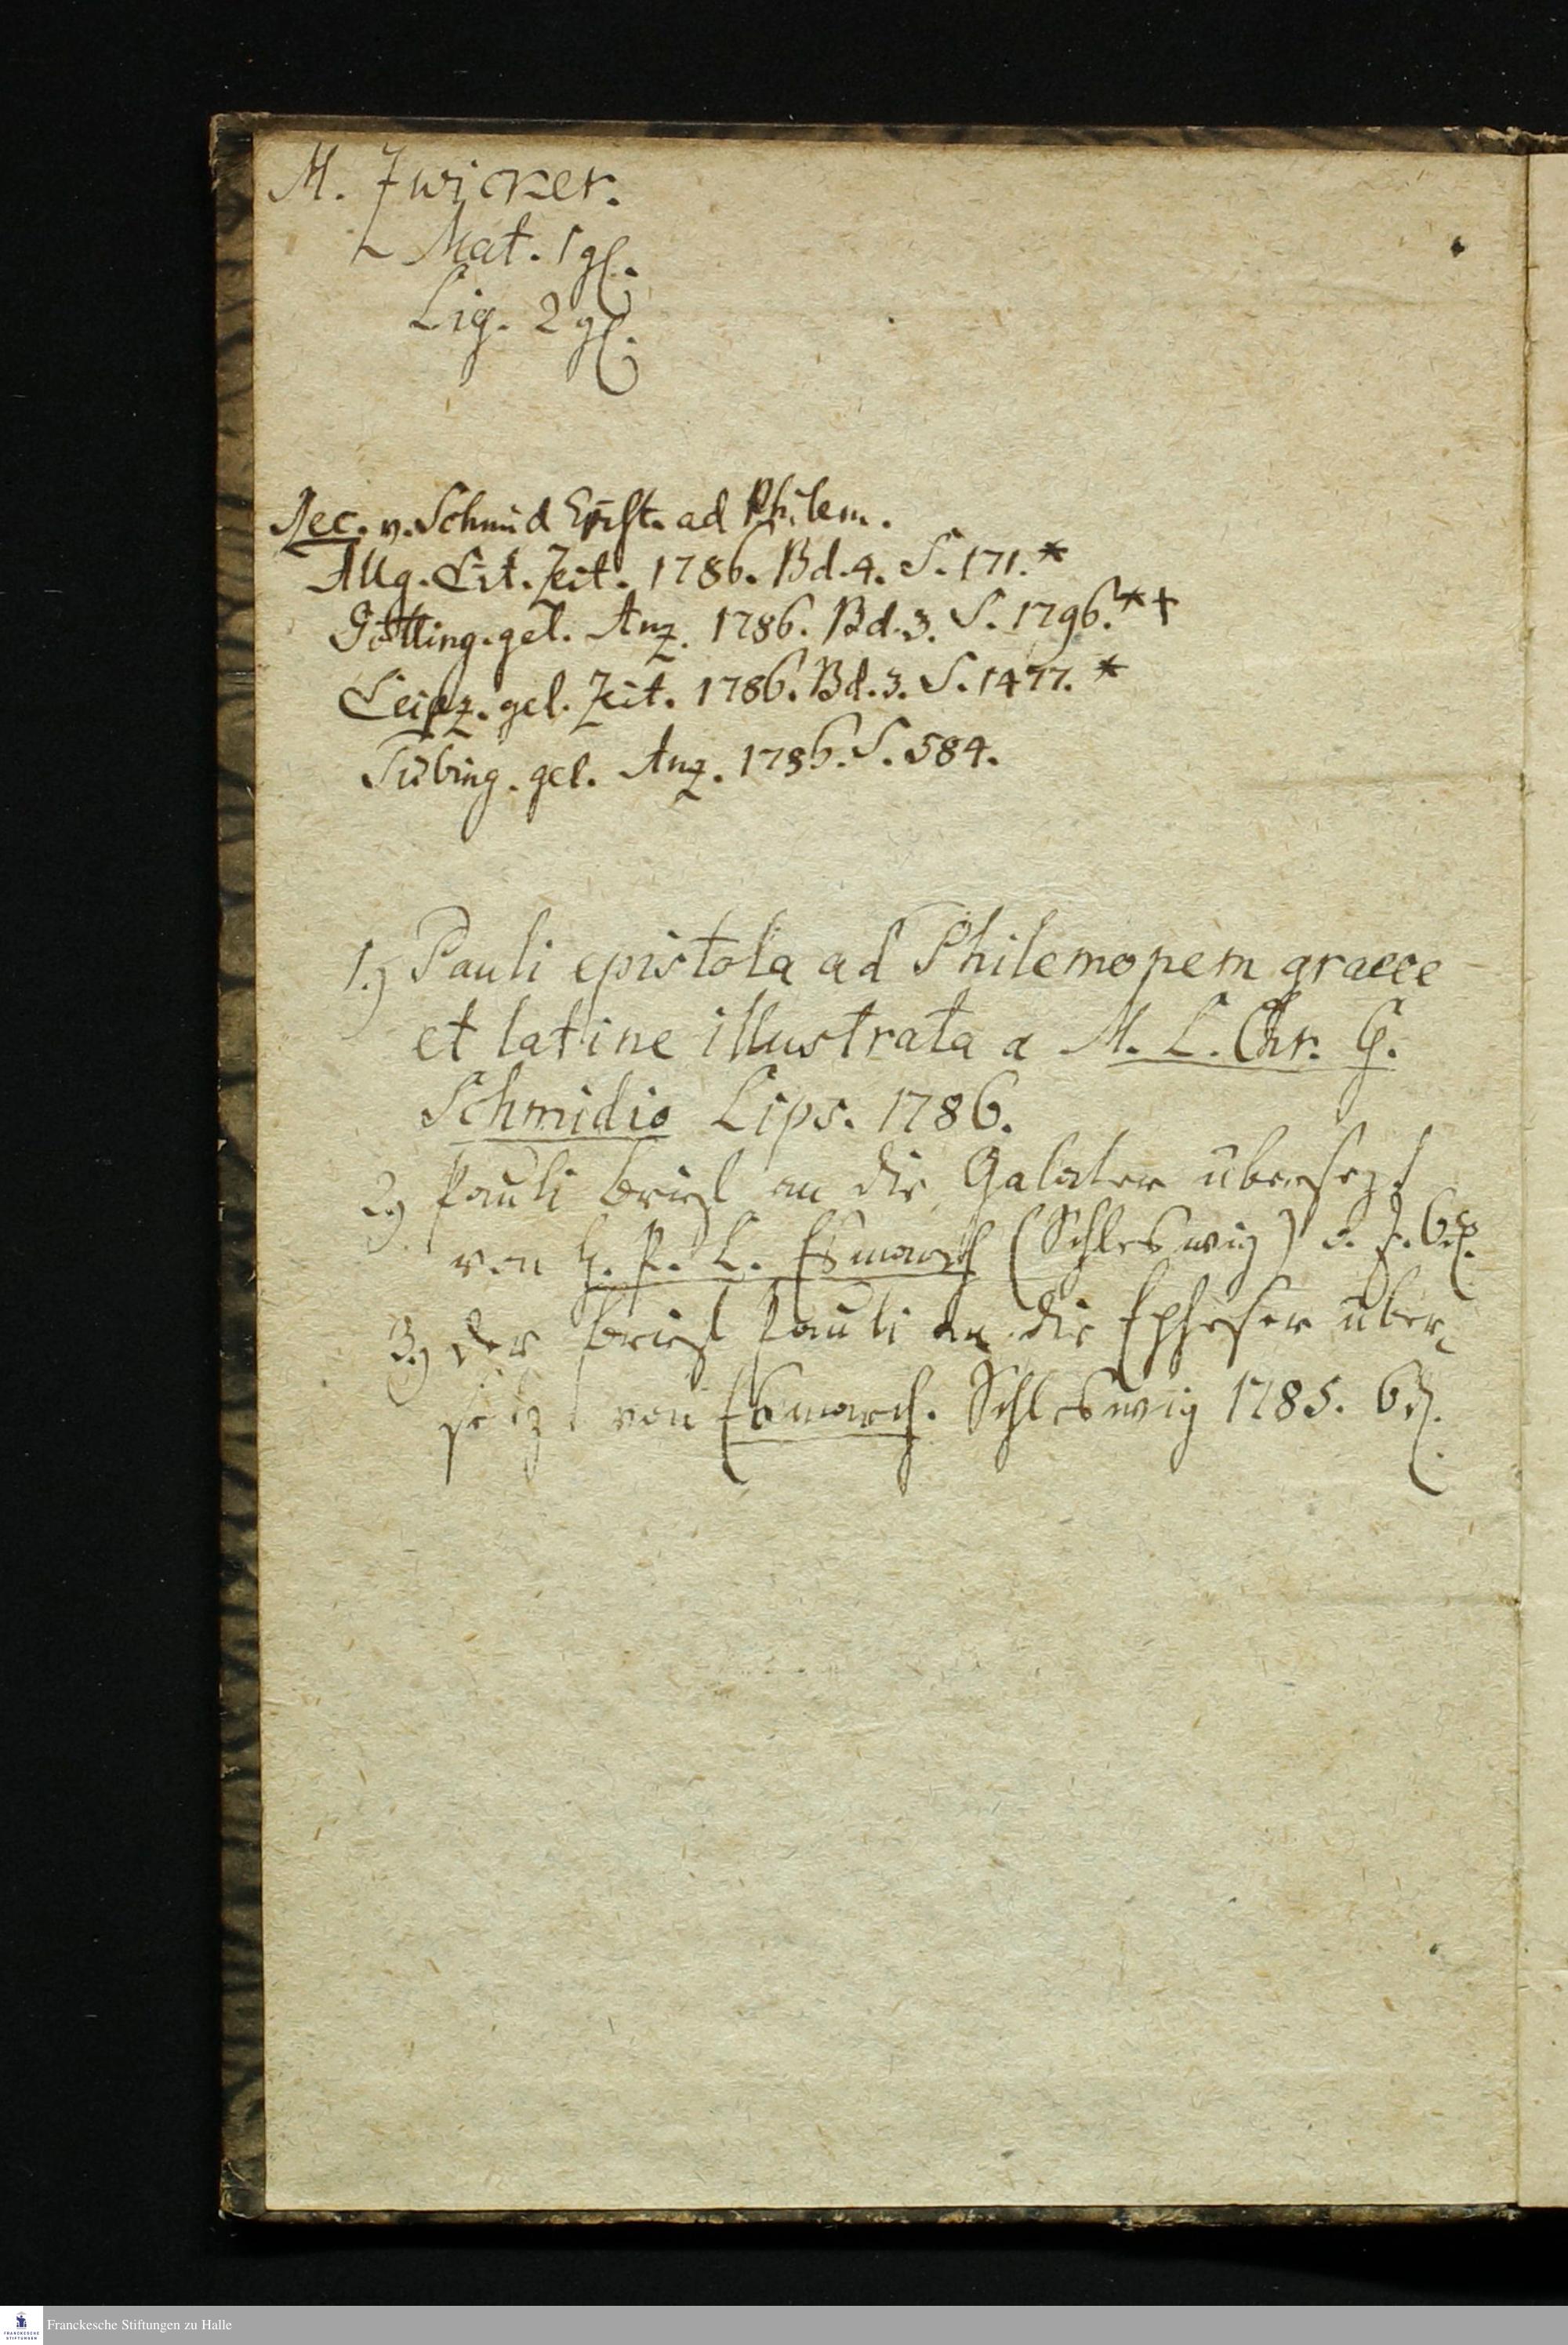 M. Zwicker.
Mat. 1 gl.
Lig. 2 gl.
Rec. v. Schmid Epist. ad Philem.
Allg. Lit. Zeit. 1786. Bd. 4. S. 171.*
Götting. gel. Anz. 1786. Bd. 3. S. 1796.*+
Leipz. gel. Zeit. 1786. Bd. 3. S. 1477.*
Tübing. gel. Anz. 1786. S. 584.
1.) Pauli epistola ad Philemonem graece
et latine illustrata a M. L. Chr. G.
Schmidio Lips. 1786.
2.) Pauli Brief an die Galater übersezt
von H. P. C. Esmarch (Schleswig) o. J.
3.) Der Brief Pauli an die Epheser über-
setzt von Esmarch. Schleswig 1785.
Franckesche Stiftungen zu Halle
FRANCKESCHE
STIFTUNGEN